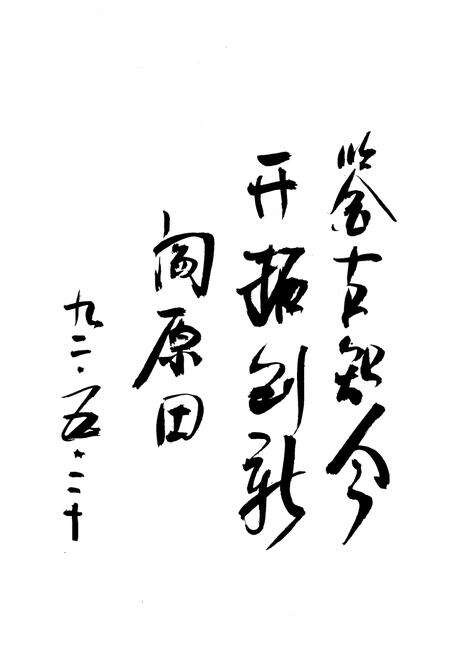 鉴古知今
开拓创新
阎原田
九二·五·二十